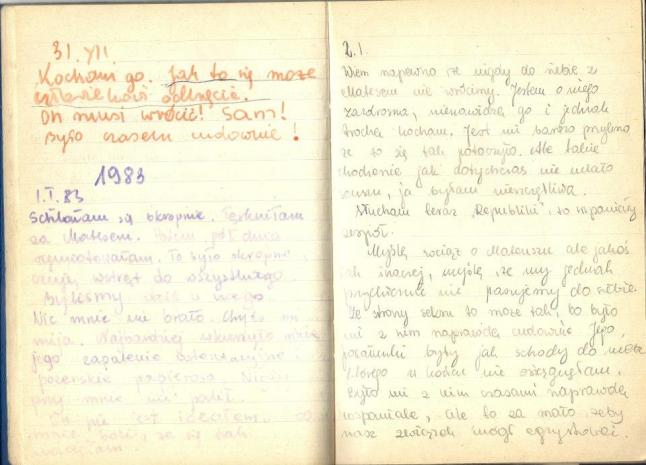 31. XII.
Kocham go. Jak to się może
człowiekowi odkręcić.
On musi wrócić! Sam!
Było czasem cudownie!
1983
1.I.83
Schlałam się okropnie. Tęskniłam
za Mateszem. Potem pół dnia
wymiotowałam. To było okropne
czuję wstręt do wszystkiego.
Byliśmy dziś u niego
Nic mnie nie brało. Chyba mi
mija. Najbardziej wkurzyło mnie
jego zapalenie
papierosa.
przy mnie nie palił.
On nie jest ideałem.
mnie boli, że się tak
2.I.
Wiem napewno że nigdy do siebie z
Mateszem nie wrócimy. Jestem o niego
zazdrosna, nienawidzę go i jednak
trochę kocham. Jest mi bardzo przykro
że to się tak potoczyło. Ale takie
chodzenie jak dotychczas nie miało
sensu, ja byłam nieszczęśliwa.
Słucham teraz „Republiki", to wspaniały
zespół.
Myślę wciąż o Mateuszu ale jakoś
tak inaczej, myślę, że my jednak
psychicznie nie pasujemy do siebie.
Ze strony seksu to może tak, bo było
mi z nim naprawdę cudownie. Jego
pocałunki były jak schody do nieba
którego w końcu nie osiągnęłam.
Było mi z nim czasami naprawdę
wspaniale, ale to za mało żeby
nasz związek mógł egzystować.